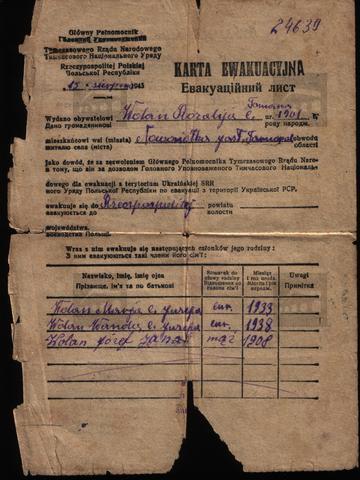 24639
Główny Pełnomocnik
Головний Уповноважений
Tymczasowego Rządu Narodowego
Тимчасового Національного Уряду
Rzeczypospolitej Polskiej
Польської Республіки
15 sierpnia 1945
KARTA EWAKUACYJNA
Евакуаційний лист
Wydano obywatelowi
Дано громадянинові
Wolan Rozalja c. Tomasza ur. 1901 r.
року народж.
mieszkańcowi wsi (miasta)
житалю села (міста)
pow. Tarnopol
obwodu
Jako dowód, że za zezwoleniem Głównego Pełnomocnika Tymczasowego Rządu Naro-
в тому, що він за дозволом Головного Уповноваженого Тимчасового Національ-
dowego dla ewakuacji z terytorium Ukraińskiej SRR
ного Уряду Польської Республіки по евакуації з території Української РСР,
ewakuuje się do Rzeczpospolitej powiatu
евакуюється до волости
województwa.
воєводства Польщі.
Wraz z nim ewakuuje się następujących członków jego rodziny:
З ним евакуюються такі члени його сім'ї:
Nazwisko, imię, imię ojca
Прізвище, ім'я та по батькові
Stosunek do głowy rodziny
Відношення до голови сім'ї
Miesiąc i rok urodz.
Місяць і рік народж.
Uwagi
Примітка
Wolan Marja c. Juzefa cur. 1933
Wolan Wanda c. Juzefa cur. 1938
Wolan Józef Jana mąż 1908